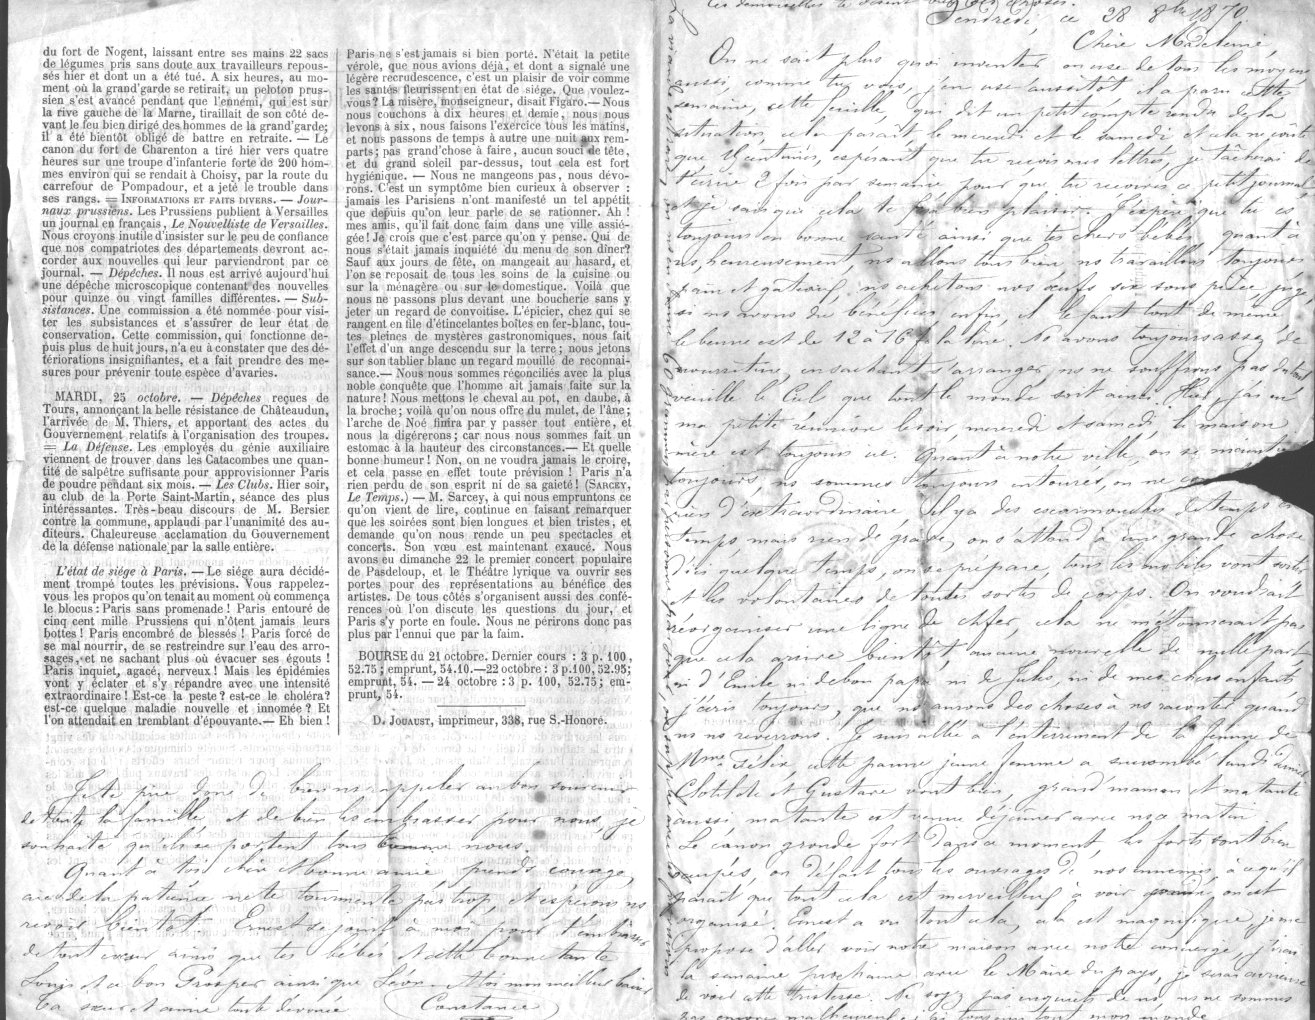 du fort de Nogent, laissant entre ses mains 22 sacs
de légumes pris sans doute aux travailleurs repous-
sés hier et dont un a été tué. A six heures, au mo-
ment où la grand'garde se retirait, un peloton prus-
sien s'est avancé pendant que l'ennemi, qui est sur
la rive gauche de la Marne, tiraillait de son côté de-
vant le feu bien dirigé des hommes de la grand'garde;
il a été bientôt obligé de battre en retraite. — Le
canon du fort de Charenton a tiré hier vers quatre
heures sur une troupe d'infanterie forte de 200 hom-
mes environ qui se rendait à Choisy, par la route du
carrefour de Pompadour, et a jeté le trouble dans
ses rangs. = INFORMATIONS ET FAITS DIVERS. — Jour-
naux prussiens. Les Prussiens publient à Versailles
un journal en français, Le Nouvelliste de Versailles.
Nous croyons inutile d'insister sur le peu de confiance
que nos compatriotes des départements devront ac-
corder aux nouvelles qui leur parviendront par ce
journal. — Dépêches. Il nous est arrivé aujourd'hui
une dépêche microscopique contenant des nouvelles
pour quinze ou vingt familles différentes. — Sub-
sistances. Une commission a été nommée pour visi-
ter les subsistances et s'assurer de leur état de
conservation. Cette commission, qui fonctionne de-
puis plus de huit jours, n'a eu à constater que des dé-
tériorations insignifiantes, et a fait prendre des me-
sures pour prévenir toute espèce d'avaries.
MARDI, 25 octobre. — Dépêches reçues de
Tours, annonçant la belle résistance de Châteaudun,
l'arrivée de M. Thiers, et apportant des actes du
Gouvernement relatifs à l'organisation des troupes.
= La Défense. Les employés du génie auxiliaire
viennent de trouver dans les Catacombes une quan-
tité de salpêtre suffisante pour approvisionner Paris
de poudre pendant six mois. — Les Clubs. Hier soir,
au club de la Porte Saint-Martin, séance des plus
intéressantes. Très-beau discours de M. Bersier
contre la commune, applaudi par l'unanimité des au-
diteurs. Chaleureuse acclamation du Gouvernement
de la défense nationale par la salle entière.
L'état de siége à Paris. — Le siége aura décidé-
ment trompé toutes les prévisions. Vous rappelez-
vous les propos qu'on tenait au moment où commença
le blocus : Paris sans promenade ! Paris entouré de
cinq cent mille Prussiens qui n'ôtent jamais leurs
bottes ! Paris encombré de blessés ! Paris forcé de
se mal nourrir, de se restreindre sur l'eau des arro-
sages, et ne sachant plus où évacuer ses égouts !
Paris inquiet, agacé, nerveux ! Mais les épidémies
vont y éclater et s'y répandre avec une intensité
extraordinaire ! Est-ce la peste ? est-ce le choléra ?
est-ce quelque maladie nouvelle et innomée ? Et
l'on attendait en tremblant d'épouvante. — Eh bien !
Paris ne s'est jamais si bien porté. N'était la petite
vérole, que nous avions déjà, et dont a signalé une
légère recrudescence, c'est un plaisir de voir comme
les santés fleurissent en état de siége. Que voulez-
vous ? La misère, monseigneur, disait Figaro. — Nous
nous couchons à dix heures et demie, nous nous
levons à six, nous faisons l'exercice tous les matins,
et nous passons de temps à autre une nuit aux rem-
parts ; pas grand'chose à faire, aucun souci de tête,
et du grand soleil par-dessus, tout cela est fort
hygiénique. — Nous ne mangeons pas, nous dévo-
rons. C'est un symptôme bien curieux à observer :
jamais les Parisiens n'ont manifesté un tel appétit
que depuis qu'on leur parle de se rationner. Ah !
mes amis, qu'il fait donc faim dans une ville assié-
gée ! Je crois que c'est parce qu'on y pense. Qui de
nous s'était jamais inquiété du menu de son dîner?
Sauf aux jours de fête, on mangeait au hasard, et
l'on se reposait de tous les soins de la cuisine ou
sur la ménagère ou sur le domestique. Voilà que
nous ne passons plus devant une boucherie sans y
jeter un regard de convoitise. L'épicier, chez qui se
rangent en file d'étincelantes boîtes en fer-blanc, tou-
tes pleines de mystères gastronomiques, nous fait
l'effet d'un ange descendu sur la terre ; nous jetons
sur son tablier blanc un regard mouillé de reconnai-
sance. — Nous nous sommes réconciliés avec la plus
noble conquête que l'homme ait jamais faite sur la
nature ! Nous mettons le cheval au pot, en daube, à
la broche ; voilà qu'on nous offre du mulet, de l'âne ;
l'arche de Noé finira par y passer tout entière, et
nous la digérerons ; car nous nous sommes fait un
estomac à la hauteur des circonstances. — Et quelle
bonne humeur ! Non, on ne voudra jamais le croire,
et cela passe en effet toute prévision ! Paris n'a
rien perdu de son esprit ni de sa gaieté ! (SARCEY,
Le Temps.) — M. Sarcey, à qui nous empruntons ce
qu'on vient de lire, continue en faisant remarquer
que les soirées sont bien longues et bien tristes, et
demande qu'on nous rende un peu spectacles et
concerts. Son vœu est maintenant exaucé. Nous
avons eu dimanche 22 le premier concert populaire
de Pasdeloup, et le Théâtre lyrique va ouvrir ses
portes pour des représentations au bénéfice des
artistes. De tous côtés s'organisent aussi des confé-
rences où l'on discute les questions du jour, et
Paris s'y porte en foule. Nous ne périrons donc pas
plus par l'ennui que par la faim.
BOURSE du 21 octobre. Dernier cours : 3 p. 100,
52.75 ; emprunt, 54.10. — 22 octobre : 3 p. 100, 52.95;
emprunt, 54. — 24 octobre : 3 p. 100, 52.75 ; em-
prunt, 54.
D. JOUAUST, imprimeur, 338, rue S.-Honoré.
Je te prie donc de bien ns rappeler au bon souvenir
de toute la famille et de bien les embrasser pour nous, je
souhaite qu'elles se portent tous comme nous.
Quant à toi chère et bonne amie, prends courage
aie de la patience ne te tourmente pas trop et espérons ns
revoir bientôt Ernest se joint à moi pour t'embrasser
de tout cœur ainsi que tes bébés et cette bonne tante
Louis et ce bon Prosper ainsi que Léon. A toi mon meilleur baiser
Ta sœur et amie toute dévouée
Constance
Vendredi, ce 28 8bre 1870
Chère Madeleine
On ne sait plus quoi inventer on use de tous les moyens
aussi, comme tu vois, j'en use aussitôt il a paru cette
semaine, cette feuille, qui dit un petit compte rendu de la
situation, elle paraît le mercredi et le samedi et cela ne coûte
que centimes, espérant que tu reçois mes lettres, je tâcherai de
t'écrire 2 fois par semaine pour que tu reçoives ce petit journal
et je sais que cela te fera bien plaisir. J'espère que tu es
toujours en bonne santé ainsi que tes chers bébés, quant à
ns, heureusement, ns allons tous bien ns travaillons toujours
pain et gateaux, ns achetons nos œufs six sous pièce, juge
si ns avons du bénéfice, enfin, il le faut tout de même
le beurre est de 12 à 16 f la livre. Ns avons toujours assez de
nourriture, en sachant s'arranger, ns ne souffrons pas
veuille le Ciel que tout le monde soit ainsi. Hier, j'ai eu
ma petite réunion le soir mercredi et samedi, la maison
mère est toujours ici. Quant à notre ville, on se
toujours, ns sommes toujours entourés, on ne
rien d'extraordinaire il y a des escarmouches de temps en
temps mais rien de grave, on s'attend à une grande chose
d'ici quelque temps, on se prépare, tous les mobiles vont sortir
et les volontaires de toutes sortes de corps. On voudrait
réorganiser une ligne de chfer, cela ne m'étonnerait pas
que cela arrive bientôt aucune nouvelle de nulle part
ni d'Emile ni de bon papa, ni de Jules, ni de mes chers enfants
j'écris toujours, que ns aurons des choses à ns raconter quand
ns ns reverrons. Je suis allée à l'enterrement de la femme de
Mme Félix cette pauvre jeune femme a succombé lundi
Clotilde et Gustave vont bien, grand'maman et ma tante
aussi ma tante est venue déjeuner avec ns ce matin
Le canon gronde fort dans ce moment, les forts sont bien
occupés, on défait tous les ouvrages de nos ennemis, à ce qu'il
paraît que tout cela est merveilleux à voir on est
organisé. Ernest a vu tout cela, cela est magnifique, je me
propose d'aller voir notre maison avec notre concierge, j'irai
la semaine prochaine avec le Maire du pays, je serai curieuse
de voir cette tristesse. Ne soyez pas inquiets de ns, ns ne sommes
pas encore malheureux